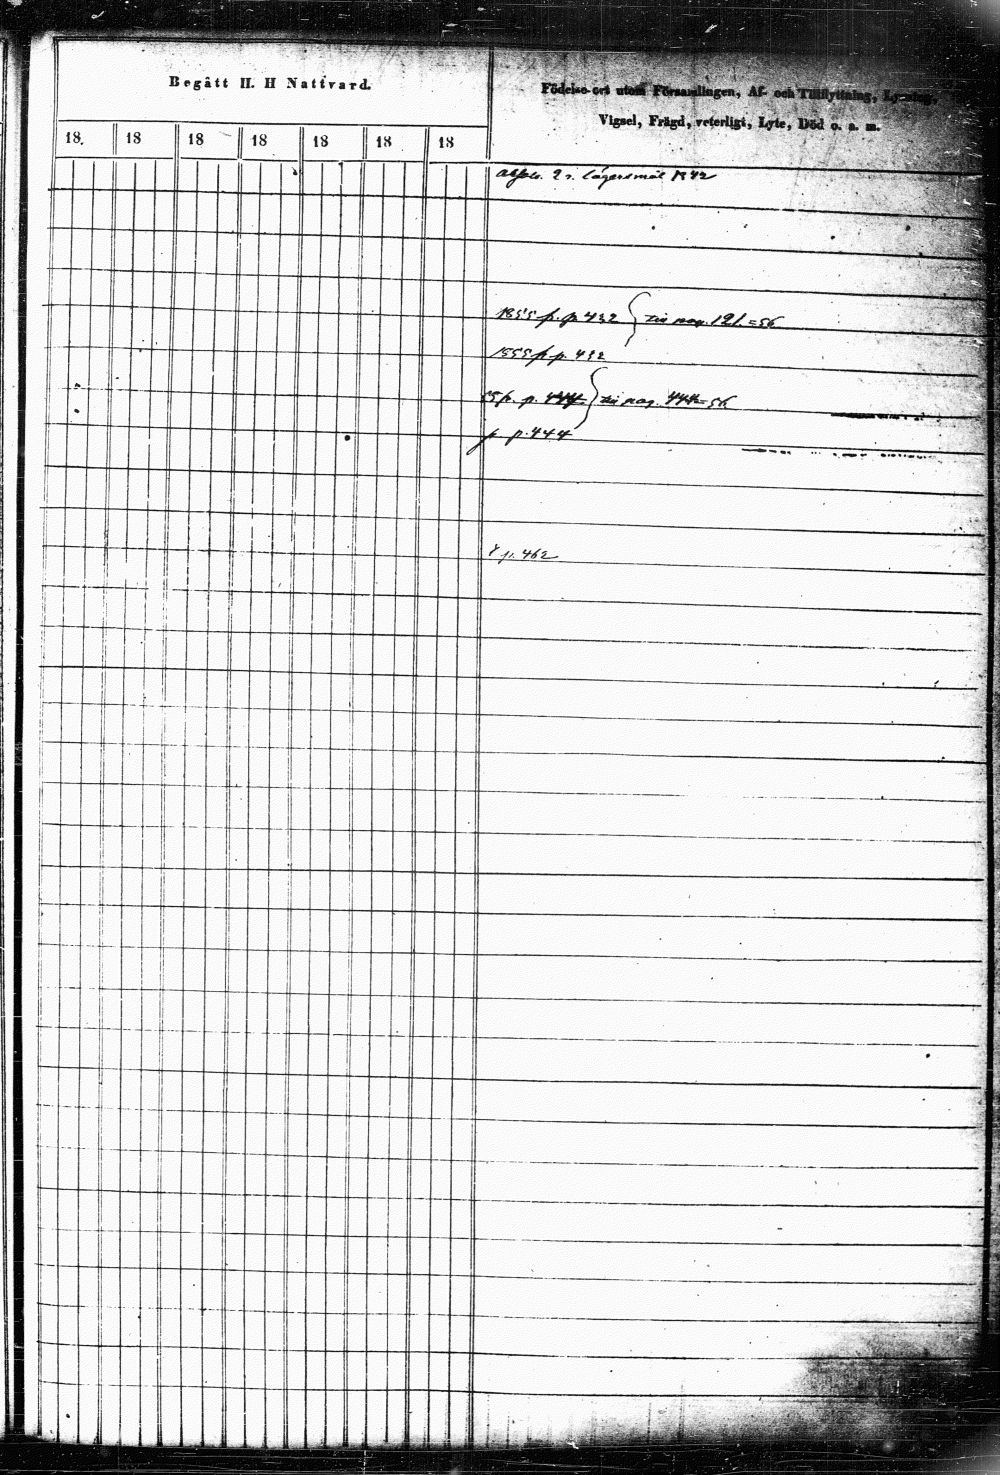 Begått H. H Nattvard.
Födelse-ort utom Församlingen, Af- och Tillflyttning, Lysning,
Vigsel, Frägd, veterligt, Lyte, Död o. a. m.
18 18 18 18 18 18 18
2 r. lägersmål 1842
1855 p. p 432 pag. 121. =56
1855 p p. 432
55 p. p. 444 pag. 444=56
p p. 444
p. 462